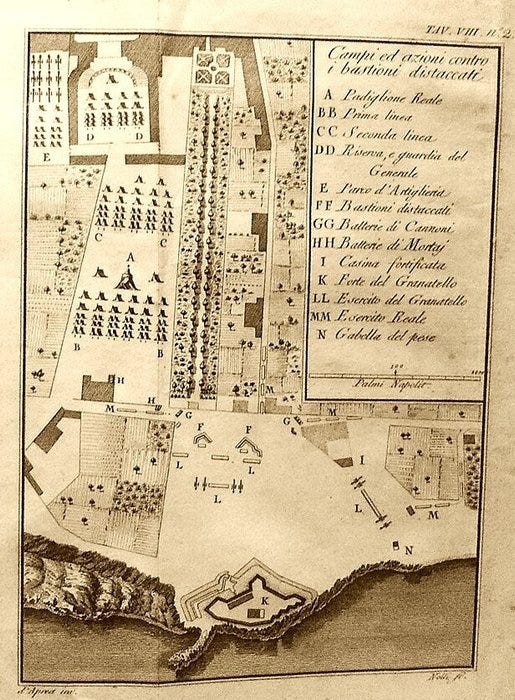 TAV. VIII. n.° 2.
Campi ed azioni contro
i bastioni distaccati
A Padiglione Reale
BB Prima linea
CC Seconda linea
DD Riserva, e guardia del
Generale
E Parco d'Artiglieria
FF Bastioni distaccati
GG Batterie di Cannoni
HH Batterie di Mortaj
I Casina fortificata
K Forte del Granatello
LL Esercito del Granatello
MM Esercito Reale
N Gabella del pesce
100
Palmi Napolit.
D D
E
C C
A
B B
H
M H G
M
G M
F F
L L
L
I
L
M
N
K
d'Apréa inv.